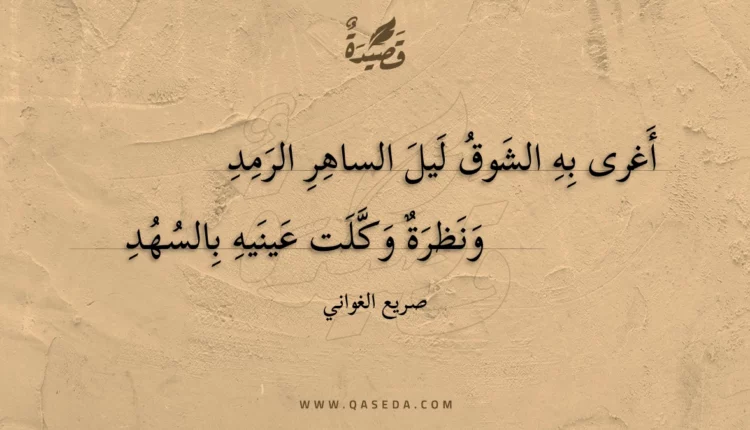 قَصِيْدَةٌ
أَغرى بِهِ الشَوقُ لَيلَ الساهِرِ الرَمِدِ
وَنَظرَةٌ وَكَّلَت عَينَيهِ بِالسُهُدِ
صريع الغواني
WWW.QASEDA.COM